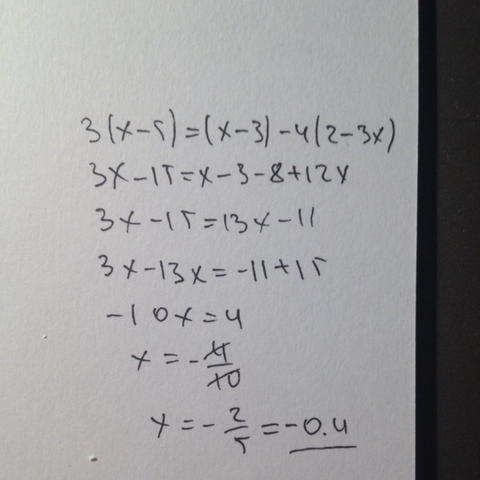 3(x-5)=(x-3)-4(2-3x)
3x-15=x-3-8+12x
3x-15=13x-11
3x-13x=-11+15
-10x=4
x=-4/10
x=-2/5=-0.4